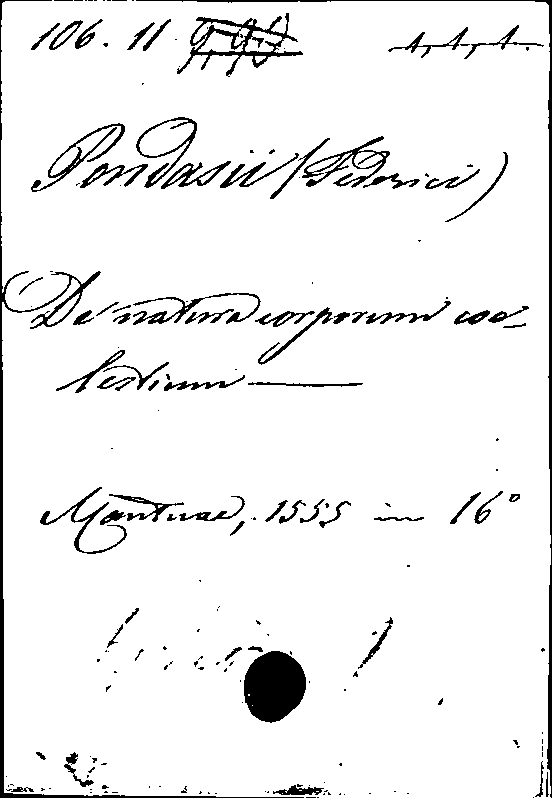 106. 11
Pendasii (Federici)
De natura corporum coe-
lestium —
Mantuae, 1555 in 16°